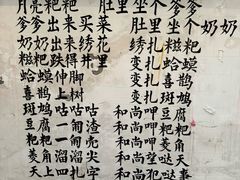 月亮粑粑 肚里坐个爹爹
爹爹出来买菜 肚里坐个奶奶
奶奶出来绣花 绣扎糍粑
糍粑跌得井里 变扎蛤蟆
蛤蟆伸脚 变扎喜鹊
喜鹊上树 变扎斑鸠
斑鸠咕咕咕 和尚呷豆腐
豆腐一渣 和尚呷粑粑
粑粑一壳 和尚呷菱角
菱角溜溜尖 和尚望哒天
天上四个字 和尚犯哒事